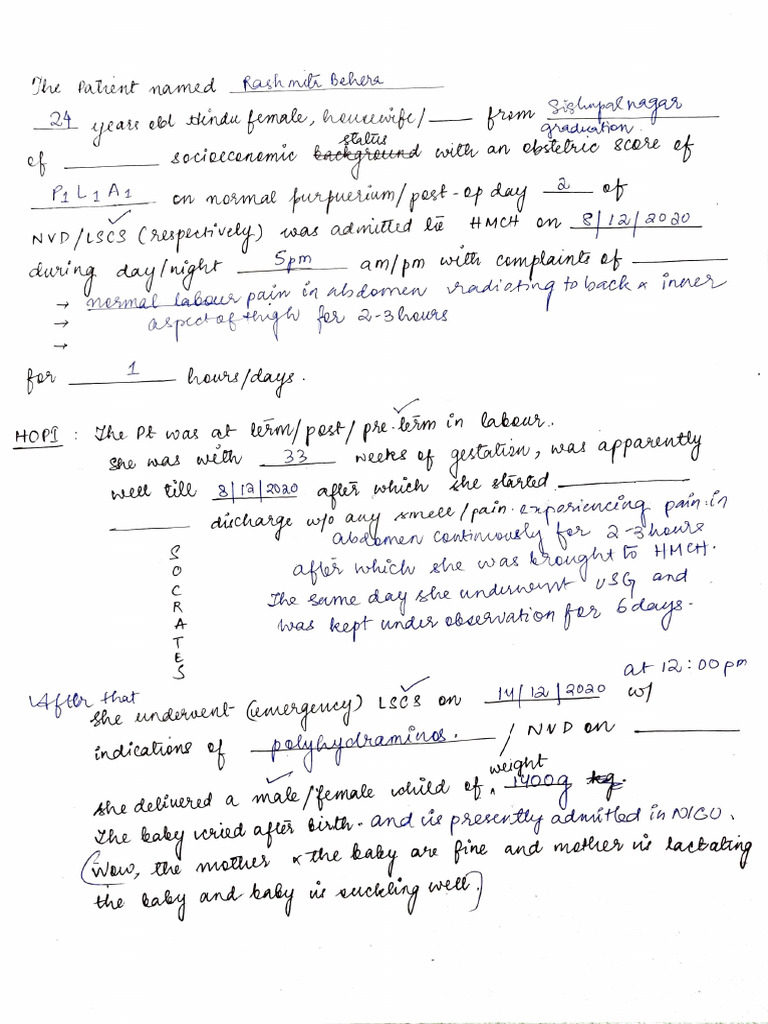 The Patient named Rashmita Behera
24 years old Hindu female, housewife/___ from Sishupalnagar
graduation.
of ________ socioeconomic background status with an obstetric score of
P1 L1 A1 on normal purpuerium/post-op day 2 of
NVD/LSCS (respectively) was admitted to HMCH on 8/12/2020
during day/night 5pm am/pm with complaints of ________
→ normal labour pain in abdomen radiating to back & inner
→ aspect of thigh for 2-3 hours
→
for 1 hours/days.
HOPI : The Pt was at term/post/pre-term in labour.
She was with 33 weeks of gestation, was apparently
well till 8/12/2020 after which she started ________
________ discharge w/o any smell/pain. experiencing pain in
abdomen continuously for 2-3 hours
after which she was brought to HMCH.
The same day she underwent USG and
was kept under observation for 6 days.
S
O
C
R
A
T
E
S
at 12:00 pm
After that
she underwent (emergency) LSCS on 14/12/2020 w/
indications of polyhydraminos. / NVD on ________
She delivered a male/female child of weight 1400g kg.
The baby cried after birth. and is presently admitted in NICU.
(Now, the mother & the baby are fine and mother is lactating
the baby and baby is suckling well.)